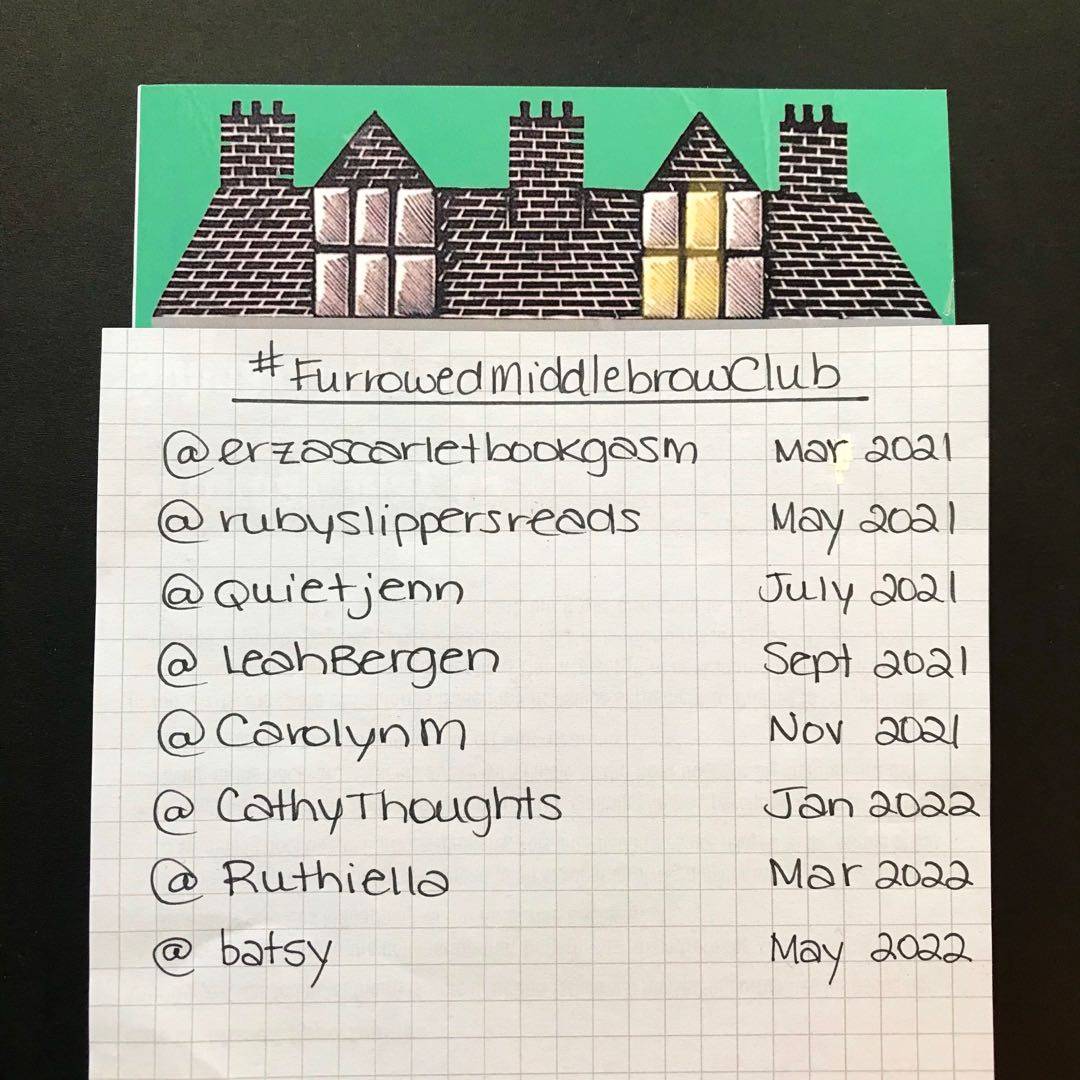 #FurrowedmiddlebrowClub
@erzascarletbookgasm Mar 2021
@rubyslippersreads May 2021
@Quietjenn July 2021
@LeahBergen Sept 2021
@CarolynM Nov 2021
@CathyThoughts Jan 2022
@Ruthiella Mar 2022
@batsy May 2022